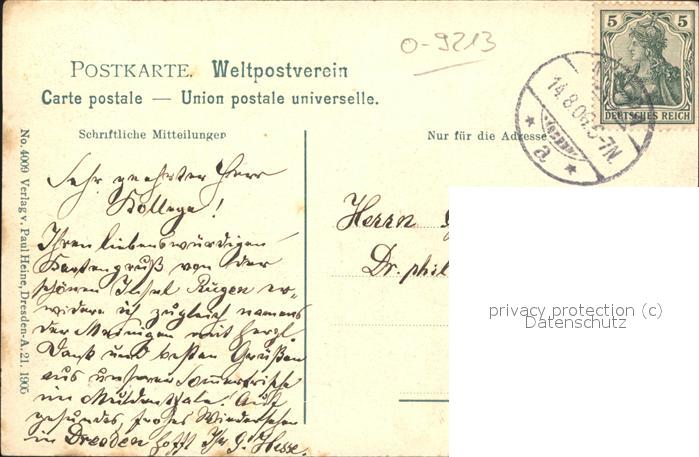 o-9213
5 5
DEUTSCHES REICH
14.8.06.6-7N.
* a *
POSTKARTE. Weltpostverein
Carte postale — Union postale universelle.
Schriftliche Mitteilungen
Nur für die Adresse
No. 4009 Verlag v. Paul Heine, Dresden-A. 21. 1905
Sehr geehrter Herr
Kollege!
Ihren liebenswürdigen
Kartengruß von der
schönen Insel Rügen er-
widere ich zugleich namens
der Meinigen mit herzl.
Dank und besten Grüßen
aus unserer Sommerfrische
im Muldentale. Auf
gesundes, frohes Wiedersehen
in Dresden hofft Ihr G. Hesse.
Herrn
Dr. phil
privacy protection (c)
Datenschutz